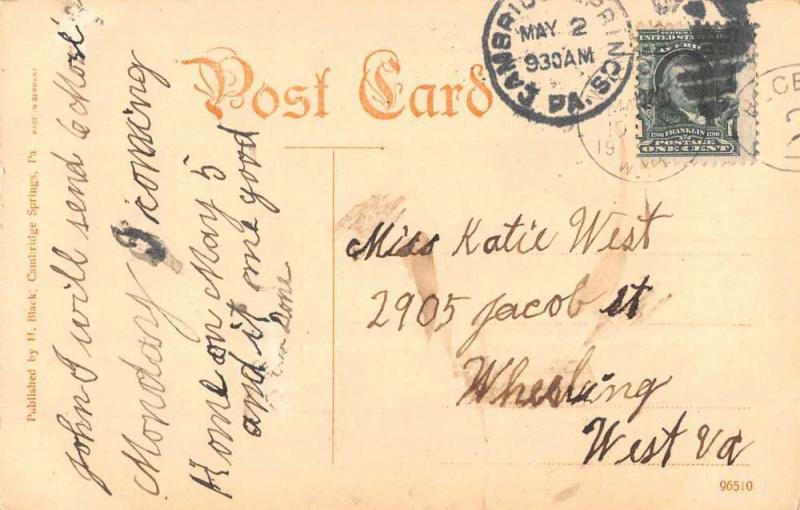 Post Card
CAMBRIDGE SPRINGS
MAY 2
930AM
PA.
SERIES 1902
UNITED STATES OF
AMERICA
1706 FRANKLIN 1790
POSTAGE
ONE CENT
W. VA.
CE
MADE IN GERMANY
Published by H. Black; Cambridge Springs, Pa
John I will send
Monday I coming
Home on May 5
and it me good
Done
Miss Katie West
2905 Jacob st
Wheeling
West Va
96510